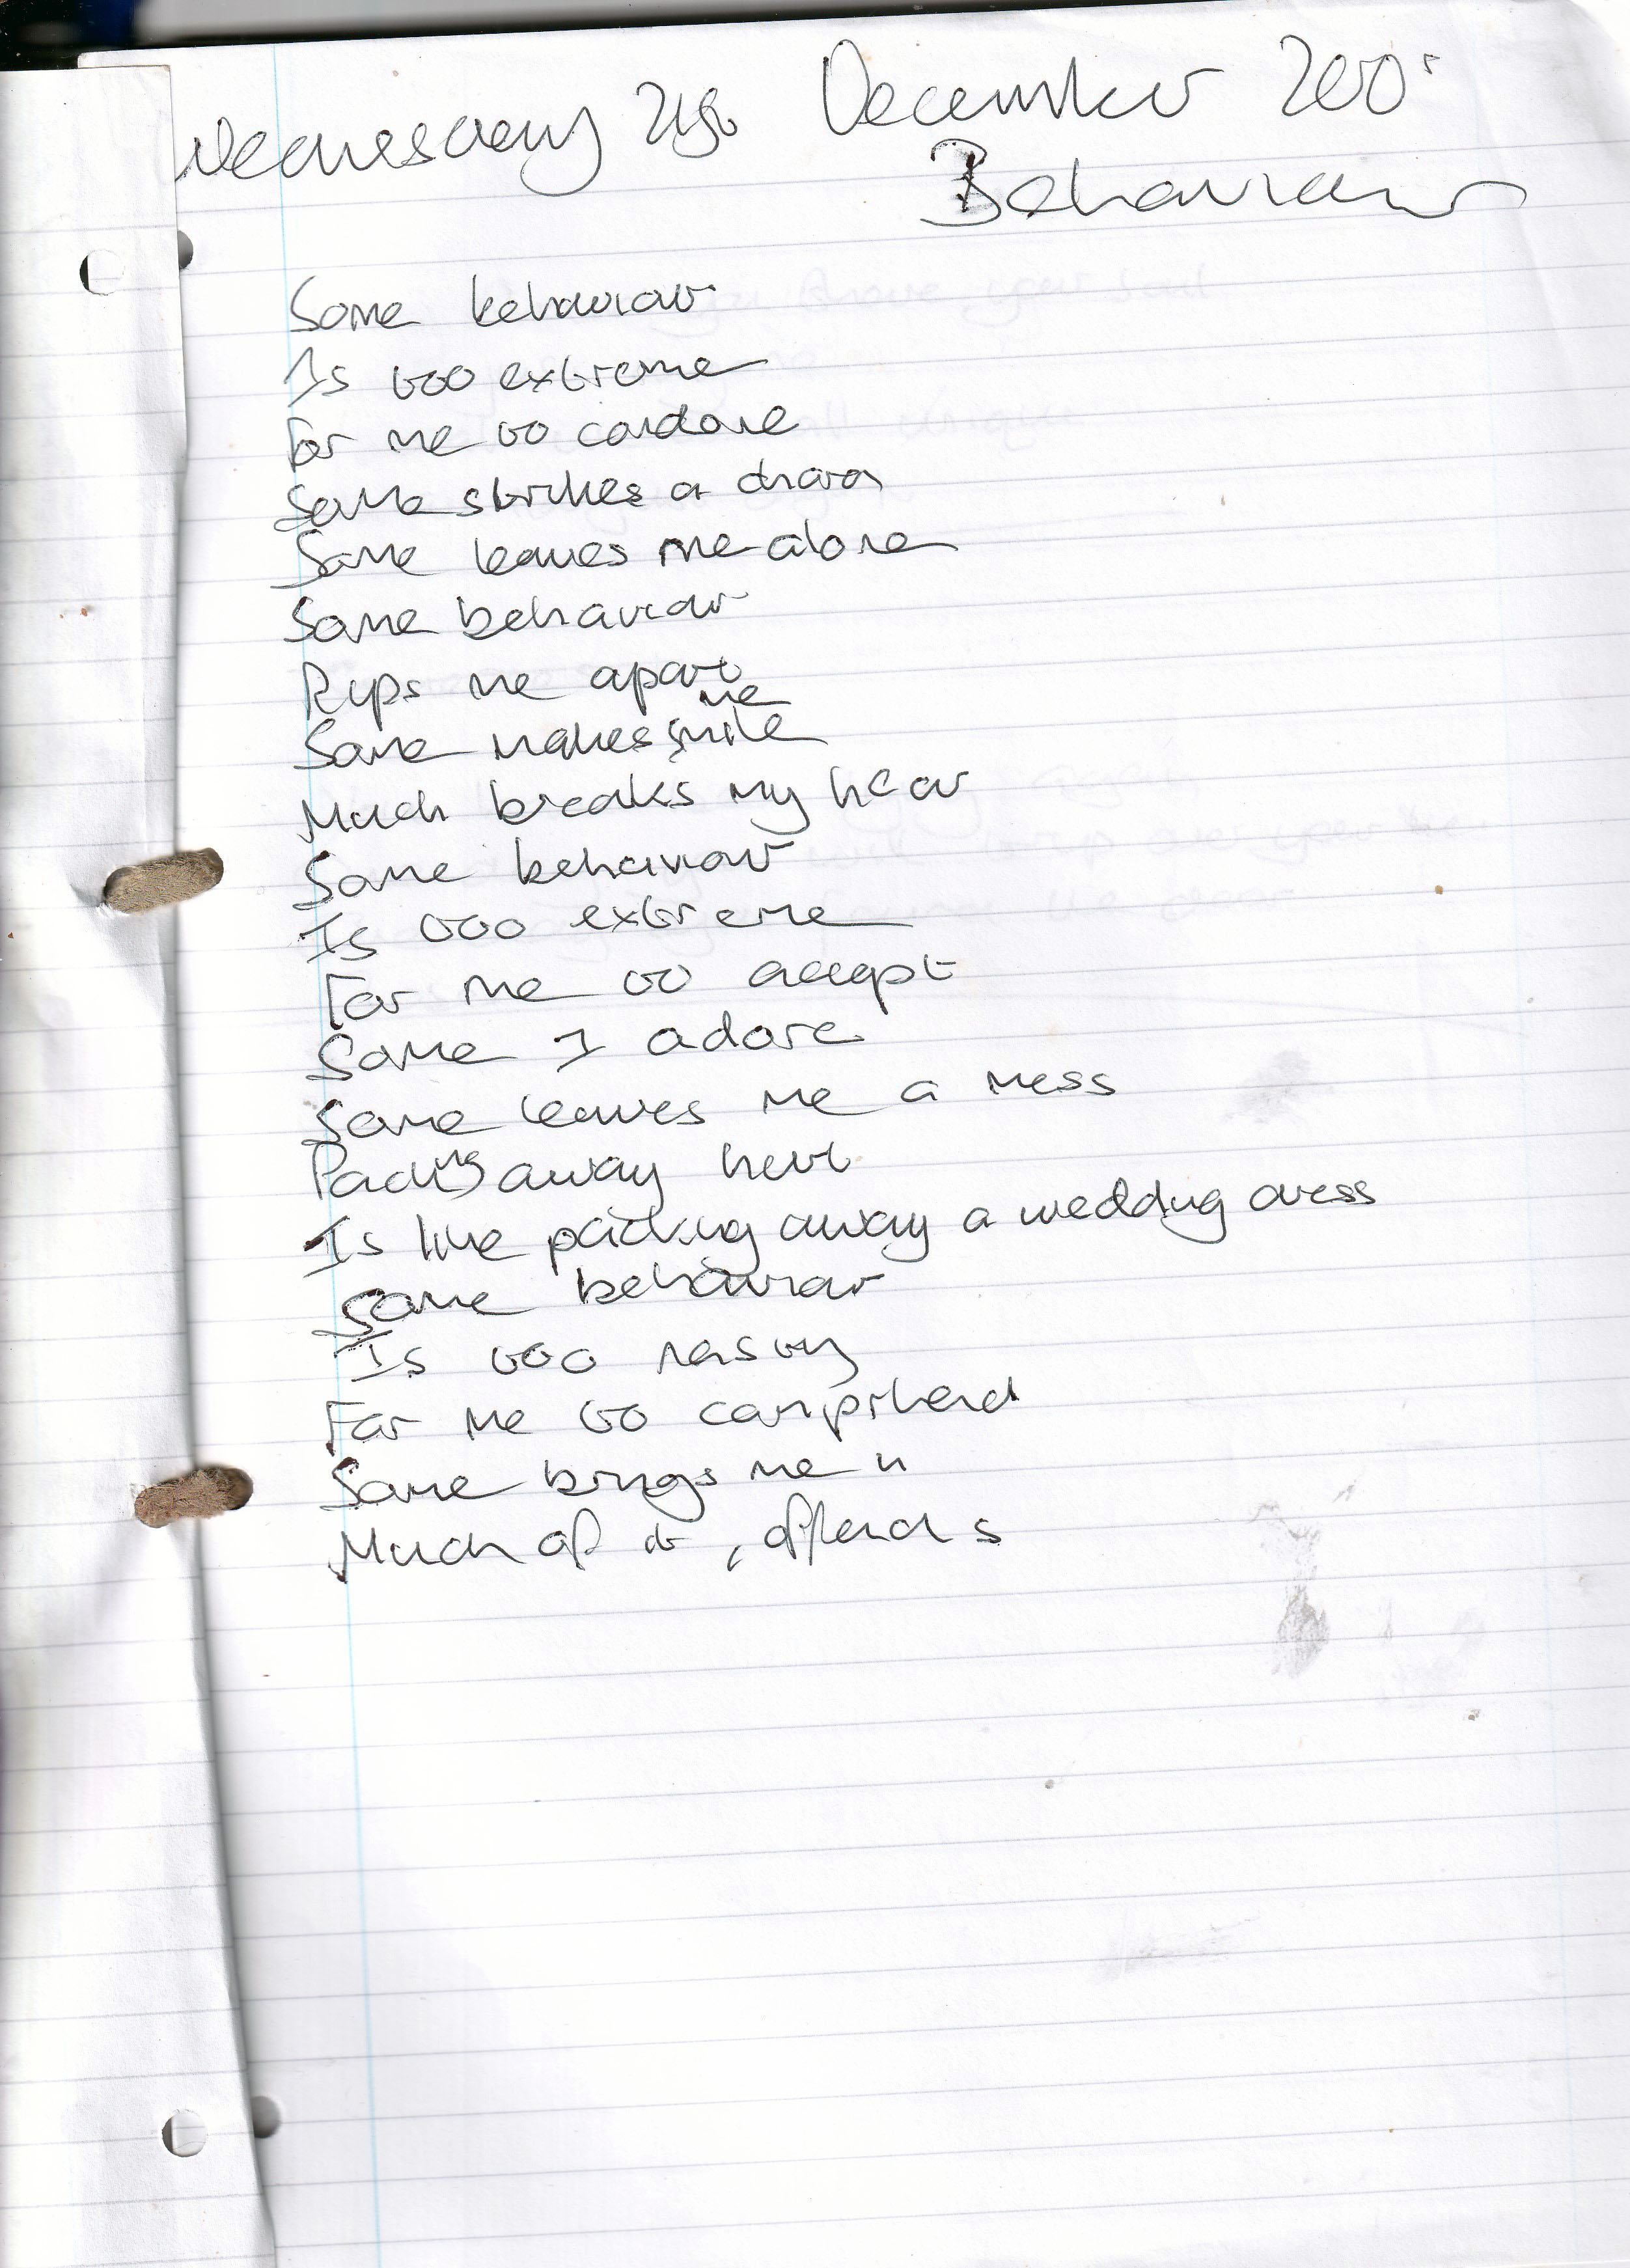 Wednesday 21st December 200
Behaviour
Some behaviour
Is too extreme
For me to condone
Some strikes a chord
Some leaves me alone
Some behaviour
Rips me apart
Some makes me smile
Much breaks my heart
Some behaviour
Is too extreme
For me to accept
Some I adore
Some leaves me a mess
Packing away hurt
Is like packing away a wedding dress
Some behaviour
Is too nasty
For me to comprhend
Some brings me in
Much of it, offends